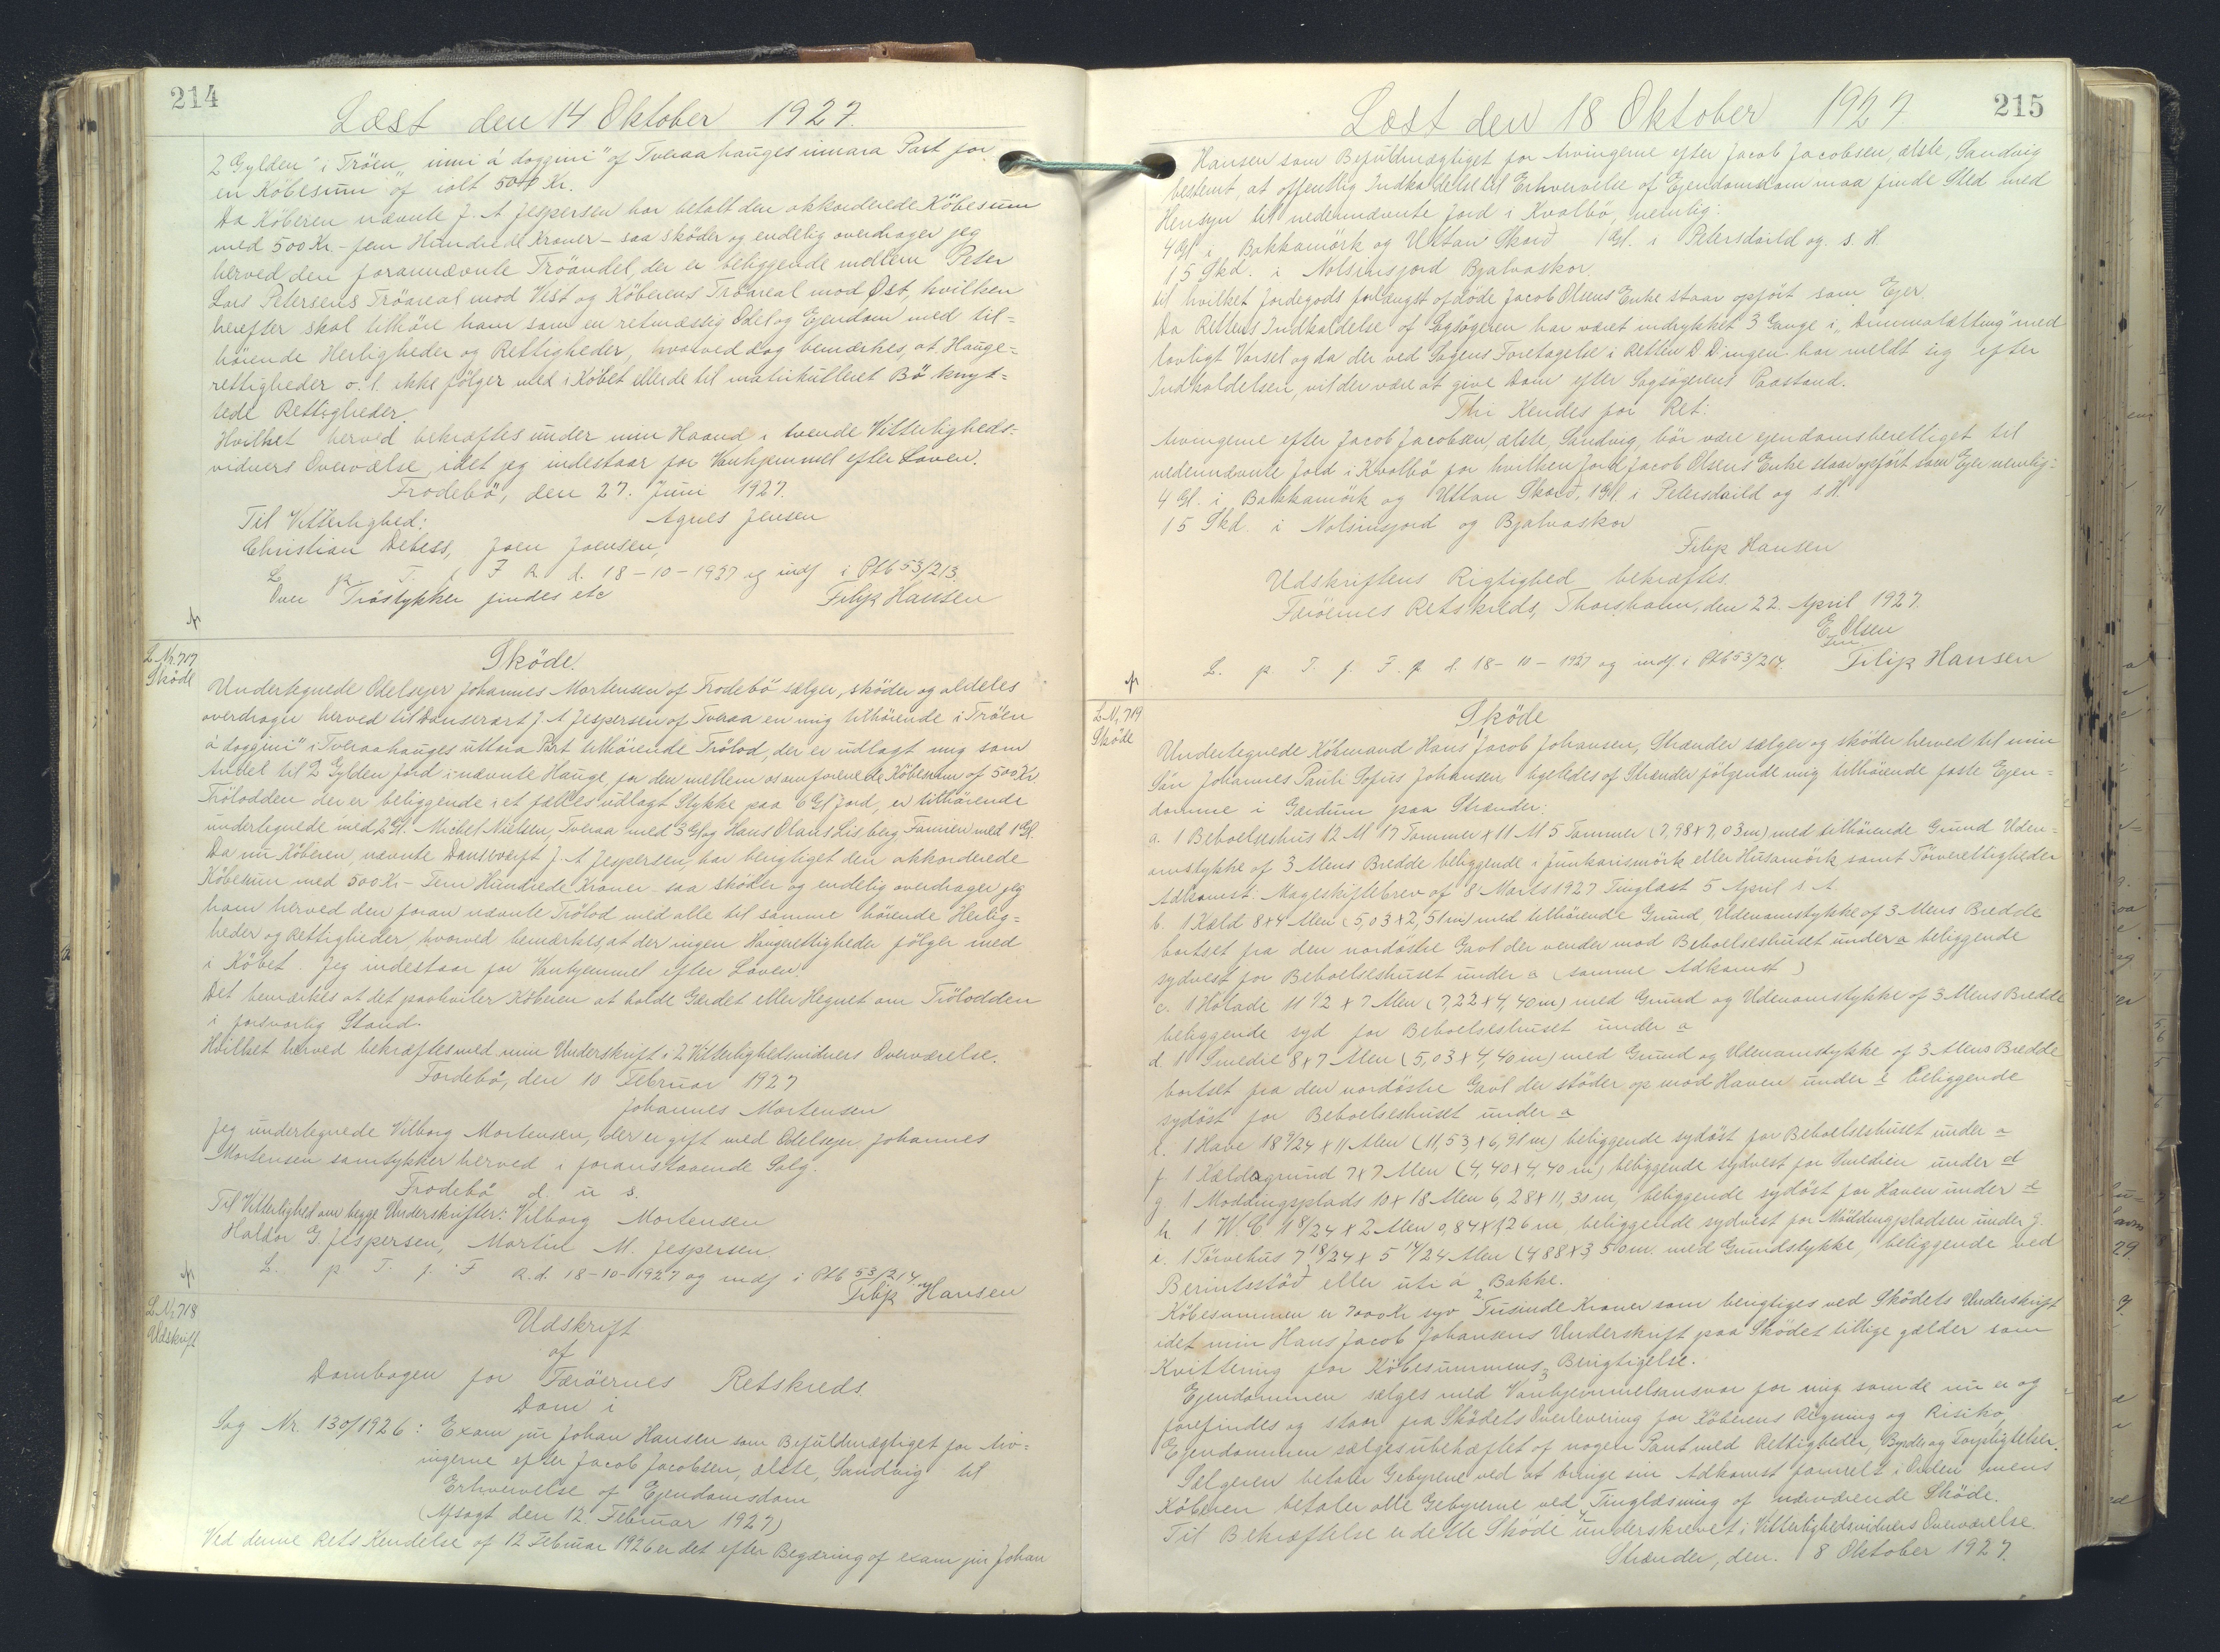 214
Læst den 14 Oktober 1927.
2 Gylden i Tröen "inni á doggini" af Tveraahauges innara Part for
en Köbesum af ialt 500 Kr.
Da Köberen nævnte J. A Jespersen har betalt den akkorderede Köbesum
med 500 Kr. - fem Hundrede Kroner - saa sköder og endelig overdrager jeg
herved den forannævnte Tröandel, der er beliggende mellem Peter
Lars Petersens Tröareal mod Vest og Köberens Tröareal mod Öst, hvilken
herefter skal tilhöre ham som en retmæssig Odel og Ejendom med til=
hörende Herligheder og Rettigheder, hvorved dog bemærkes, at Hauge=
rettigheder o. l. ikke fölger med i Köbet eller de til matrikulleret Bö knyt=
tede Rettigheder.
Hvilket herved bekræftes under min Haand i tvende Vitterligheds=
vidners Overværelse, idet jeg indestaar for Vanhjemmel efter Loven.
Frodebö, den 27. Juni 1927.
Til Vitterlighed: Agnes Jensen
Christian Debess, Joen Joensen,
L. p. T. f. F R. d. 18-10-1927 og indf i Ptb 53/213.
Over Tröstykker findes etc Filip Hansen
L. Nr. 717
Sköde
Sköde.
Undertegnede Odelsejer Johannes Mortensen af Frodebö sælger, sköder og aldeles
overdrager herved til Dansevært J. A Jespersen af Tveraa en mig tilhörende i Tröen
"á doggini" i Tveraahauges uttara Part tilhörende Trölod, der er udlagt mig som
Andel til 2 Gylden Jord i nævnte Hauge, for den mellem os omforenede Köbesum af 500 Kr.
Trölodden der er beliggende i et fælles udlagt Stykke paa 6 Gl Jord, er tilhörende
undertegnede med 2 Gl. Michel Nielsen, Tveraa med 3 Gl og Hans Olaus Lisberg, Famien med 1 Gl.
Da nu Köberen, nævnte Danseværft J. A Jespersen, har berigtiget den akkorderede
Köbesum med 500 Kr - Fem Hundrede Kroner - saa sköder og endelig overdrager jeg
ham herved den forannævnte Trölod med alle til samme hörende Herlig=
heder og Rettigheder, hvorved bemærkes, at der ingen Haugerettigheder fölger med
i Köbet. Jeg indestaar for Vanhjemmel efter Loven.
Det bemærkes at det paahviler Köberen at holde Gærdet eller Hegnet om Trölodden
i forsvarlig Stand.
Hvilket herved bekræftes med min Underskrift i 2 Vitterlighedsvidners Overværelse.
Fordebö, den 10 Februar 1927
Johannes Mortensen
Jeg undertegnede Vilborg Mortensen, der er gift med Odelsejer Johannes
Mortensen samtykker herved i foranstaaende Salg.
Frodebö d. u s.
Til Vitterlighed om begge Underskrifter: Vilborg Mortensen
Haldor G. Jespersen, Martin M. Jespersen.
L. p T. f. F R. d. 18-10-1927 og indf i Ptb 53/214.
Filip Hansen
L. Nr. 718
Udskrift
Udskrift
af
Dombogen for Færöernes Retskreds.
Dom i
Sag Nr. 130/1926: Exam jur Johan Hansen som Befuldmægtiget for Arv=
ingerne efter Jacob Jacobsen, ælste, Sandvig til
Erhvervelse af Ejendomsdom
(Afsagt den 12. Februar 1927)
Ved denne Rets Kendelse af 12 Februar 1926 er det efter Begæring af exam jur Johan
215
Læst den 18 Oktober 1927.
Hansen som Befuldmægtiget for Arvingerne efter Jacob Jacobsen, ælste, Sandvig
bestemt, at offentlig Indkaldelse til Erhvervelse af Ejendomsdom maa finde Sted med
Hensyn til nedennævnte Jord i Kvalbö, nemlig:
4 Gl i Bakkamörk og Uttan Skard 1 Gl. i Petersdeild og. s. H.
15 Skd. i Nolsinsjord Bjalvaskor.
til hvilket Jordegods forlængst afdöde Jacob Olsens Enke staar opfört som Ejer.
Da Rettens Indkaldelse af Sagsögeren har været indrykket 3 Gange i "Dimmalætting" med
lovligt Varsel og da der ved Sagens Foretagelse i Retten D. D ingen har meldt sig efter
Indkaldelsen, vil der være at give Dom efter Sagsögerens Paastand.
Thi Kendes for Ret:
Arvingerne efter Jacob Jacobsen, ælste, Sandvig, bör være ejendomsberettiget til
nedennævnte Jord i Kvalbö for hvilken Jord Jacob Olsens Enke staar opfört som Ejer nemlig:
4 Gl. i Bakkamörk og Uttan Skard, 1 Gl. i Petersdeild og s. H.
15 Skd. i Nolsinsjord og Bjalvaskor
Filip Hansen
Udskriftens Rigtighed bekræftes.
Færöernes Retskreds, Thorshavn, den 22. April 1927.
E. Olsen
L. p. T. f. F. R d. 18-10-1927 og indf. i Ptb 53/214. Filip Hansen
L. Nr. 719
Sköde
Sköde
Undertegnede Köbmand Hans Jacob Johansen, Strænder sælger og sköder herved til min
Sön Johannes Pauli Sofus Johansen ligeledes af Strænder fölgende mig tilhörende faste Ejen=
domme i Gærdum paa Strænder:
a. 1 Beboelseshus 12 Al 17 Tommer x 11 Al 5 Tommer (7,98 x 7,03 m) med tilhörende Grund Uden=
omstykke af 3 Alens Bredde beliggende i Junkarismörk eller Husamörk samt Törverettigheder
Adkomst. Mageskiftebrev af 8 Marts 1927 Tinglæst 5 April s. A.
b. 1 Kæld 8 x 4 Alen (5,03 x 2,51 m) med tilhörende Grund, Udenomstykke af 3 Alens Bredde
bortset fra den nordöstre Gavl der vender mod Beboelseshuset under a beliggende
sydvest for Beboelseshuset under a (samme Adkomst)
c. 1 Hölade 11 1/2 x 7 Alen (7,22 x 4,40 m) med Grund og Udenomstykke af 3 Alens Bredde
beliggende syd for Beboelseshuset under a
d. 1 Smedie 8 x 7 Alen (5,03 x 4,40 m) med Grund og Udenomstykke af 3 Alens Bredde
bortset fra den nordöstre Gavl der stöder op mod Haven under e beliggende
sydöst for Beboelseshuset under a
e. 1 Have 18 9/24 x 11 Alen (11,53 x 6,91 m) beliggende sydöst for Beboelseshuset under a
f. 1 Kældagrund 7 x 7 Alen (4,40 x 4,40 m) beliggende sydvest for Smedien under d
g 1 Moddingsplads 10 x 18 Alen 6,28 x 11,30 m, beliggende sydöst for Haven under e
h. 1 W. C 1 8/24 x 2 Alen 0,84 x 1,26 m beliggende sydvest for Möddingpladsen under g.
i. 1 Törvehus 7 18/24 x 5 14/24 Alen (4 88 x 3,50 m. med Grundstykke, beliggende ved
Berintsstöd eller uti á Bakke.
2
Köbesummen er 7000 Kr syv Tusinde Kroner som berigtiges ved Sködets Underskrift
idet min Hans Jacob Johansens Underskrift paa Sködet tillige gælder som
Kvittering for Köbesummens Berigtigelse.
3
Ejendommen sælges med Vanhjemmelsansvar for mig som de nu er og
forefindes og staar fra Sködets Overlevering for Köberens Regning og Risiko
Ejendommen sælges ubehæftet af nogen Pant med Rettigheder, Byrder og Forpligtelser.
Sælgeren betaler Gebyrene ved at bringe sin Adkomst formelt i Orden mens
Köberen betaler alle Gebyrerne ved Tinglæsning af nærværende Sköde.
4
Til Bekræftelse er dette Sköde underskrevet i Vitterlighedsvidners Overværelse.
Strænder, den. 8 Oktober 1927.